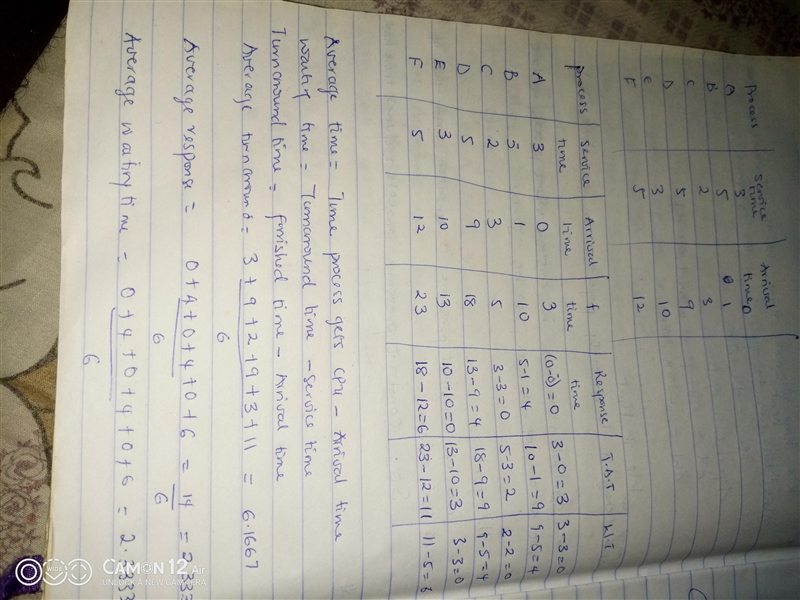 Process Service time Arrival time
A 3 0
B 5 1
C 2 3
D 5 9
E 3 10
F 5 12
process Service time Arrival time f time Response time T.A.T W.T
A 3 0 3 (0-0)=0 3-0=3 3-3=0
B 5 1 10 5-1=4 10-1=9 9-5=4
C 2 3 5 3-3=0 5-3=2 2-2=0
D 5 9 18 13-9=4 18-9=9 9-5=4
E 3 10 13 10-10=0 13-10=3 3-3=0
F 5 12 23 18-12=6 23-12=11 11-5=6
Average time = Time process gets CPU - Arrival time
waiting time = Turnaround time - service time
Turnaround time = finished time - Arrival time
Average turnaround = 3+9+2+9+3+11 = 6.1667
6
Average response = 0+4+0+4+0+6 = 14 = 2.333
6 6
Average waiting time = 0+4+0+4+0+6 = 2.333
6
CAMON 12 Air
UNLOCK A NEW CAMERA